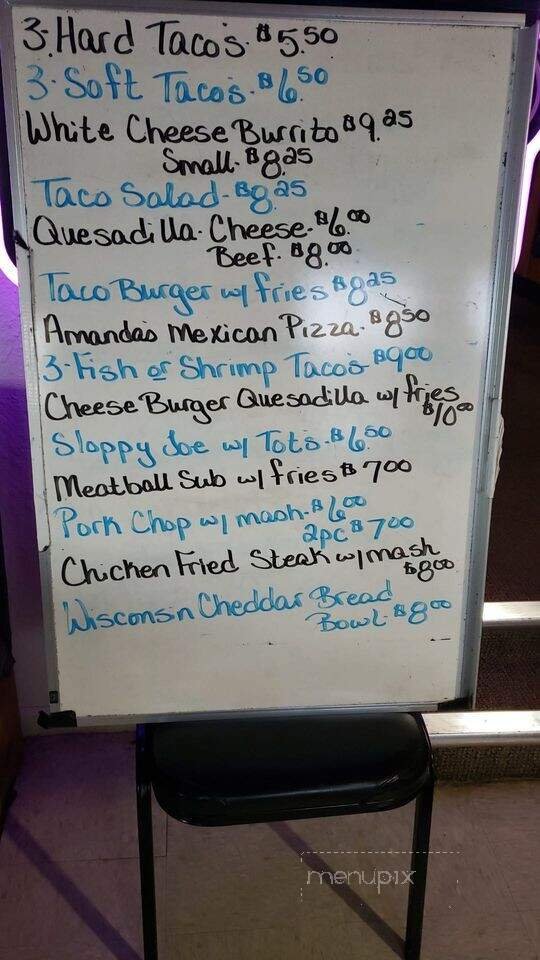 3. Hard Tacos. $5.50
3. Soft Tacos. $6.50
White Cheese Burrito $9.25
Small. $8.25
Taco Salad. $8.25
Quesadilla. Cheese. $6.00
Beef. $8.00
Taco Burger w/ fries $8.25
Amandas Mexican Pizza. $8.50
3. Fish or Shrimp Tacos $9.00
Cheese Burger Quesadilla w/ fries
$10.00
Sloppy Joe w/ Tots. $6.50
Meatball Sub w/ fries $7.00
Pork Chop w/ mash. $6.00
2pc $7.00
Chicken Fried Steak w/ mash
$8.00
Wisconsin Cheddar Bread
Bowl. $8.00
menupix